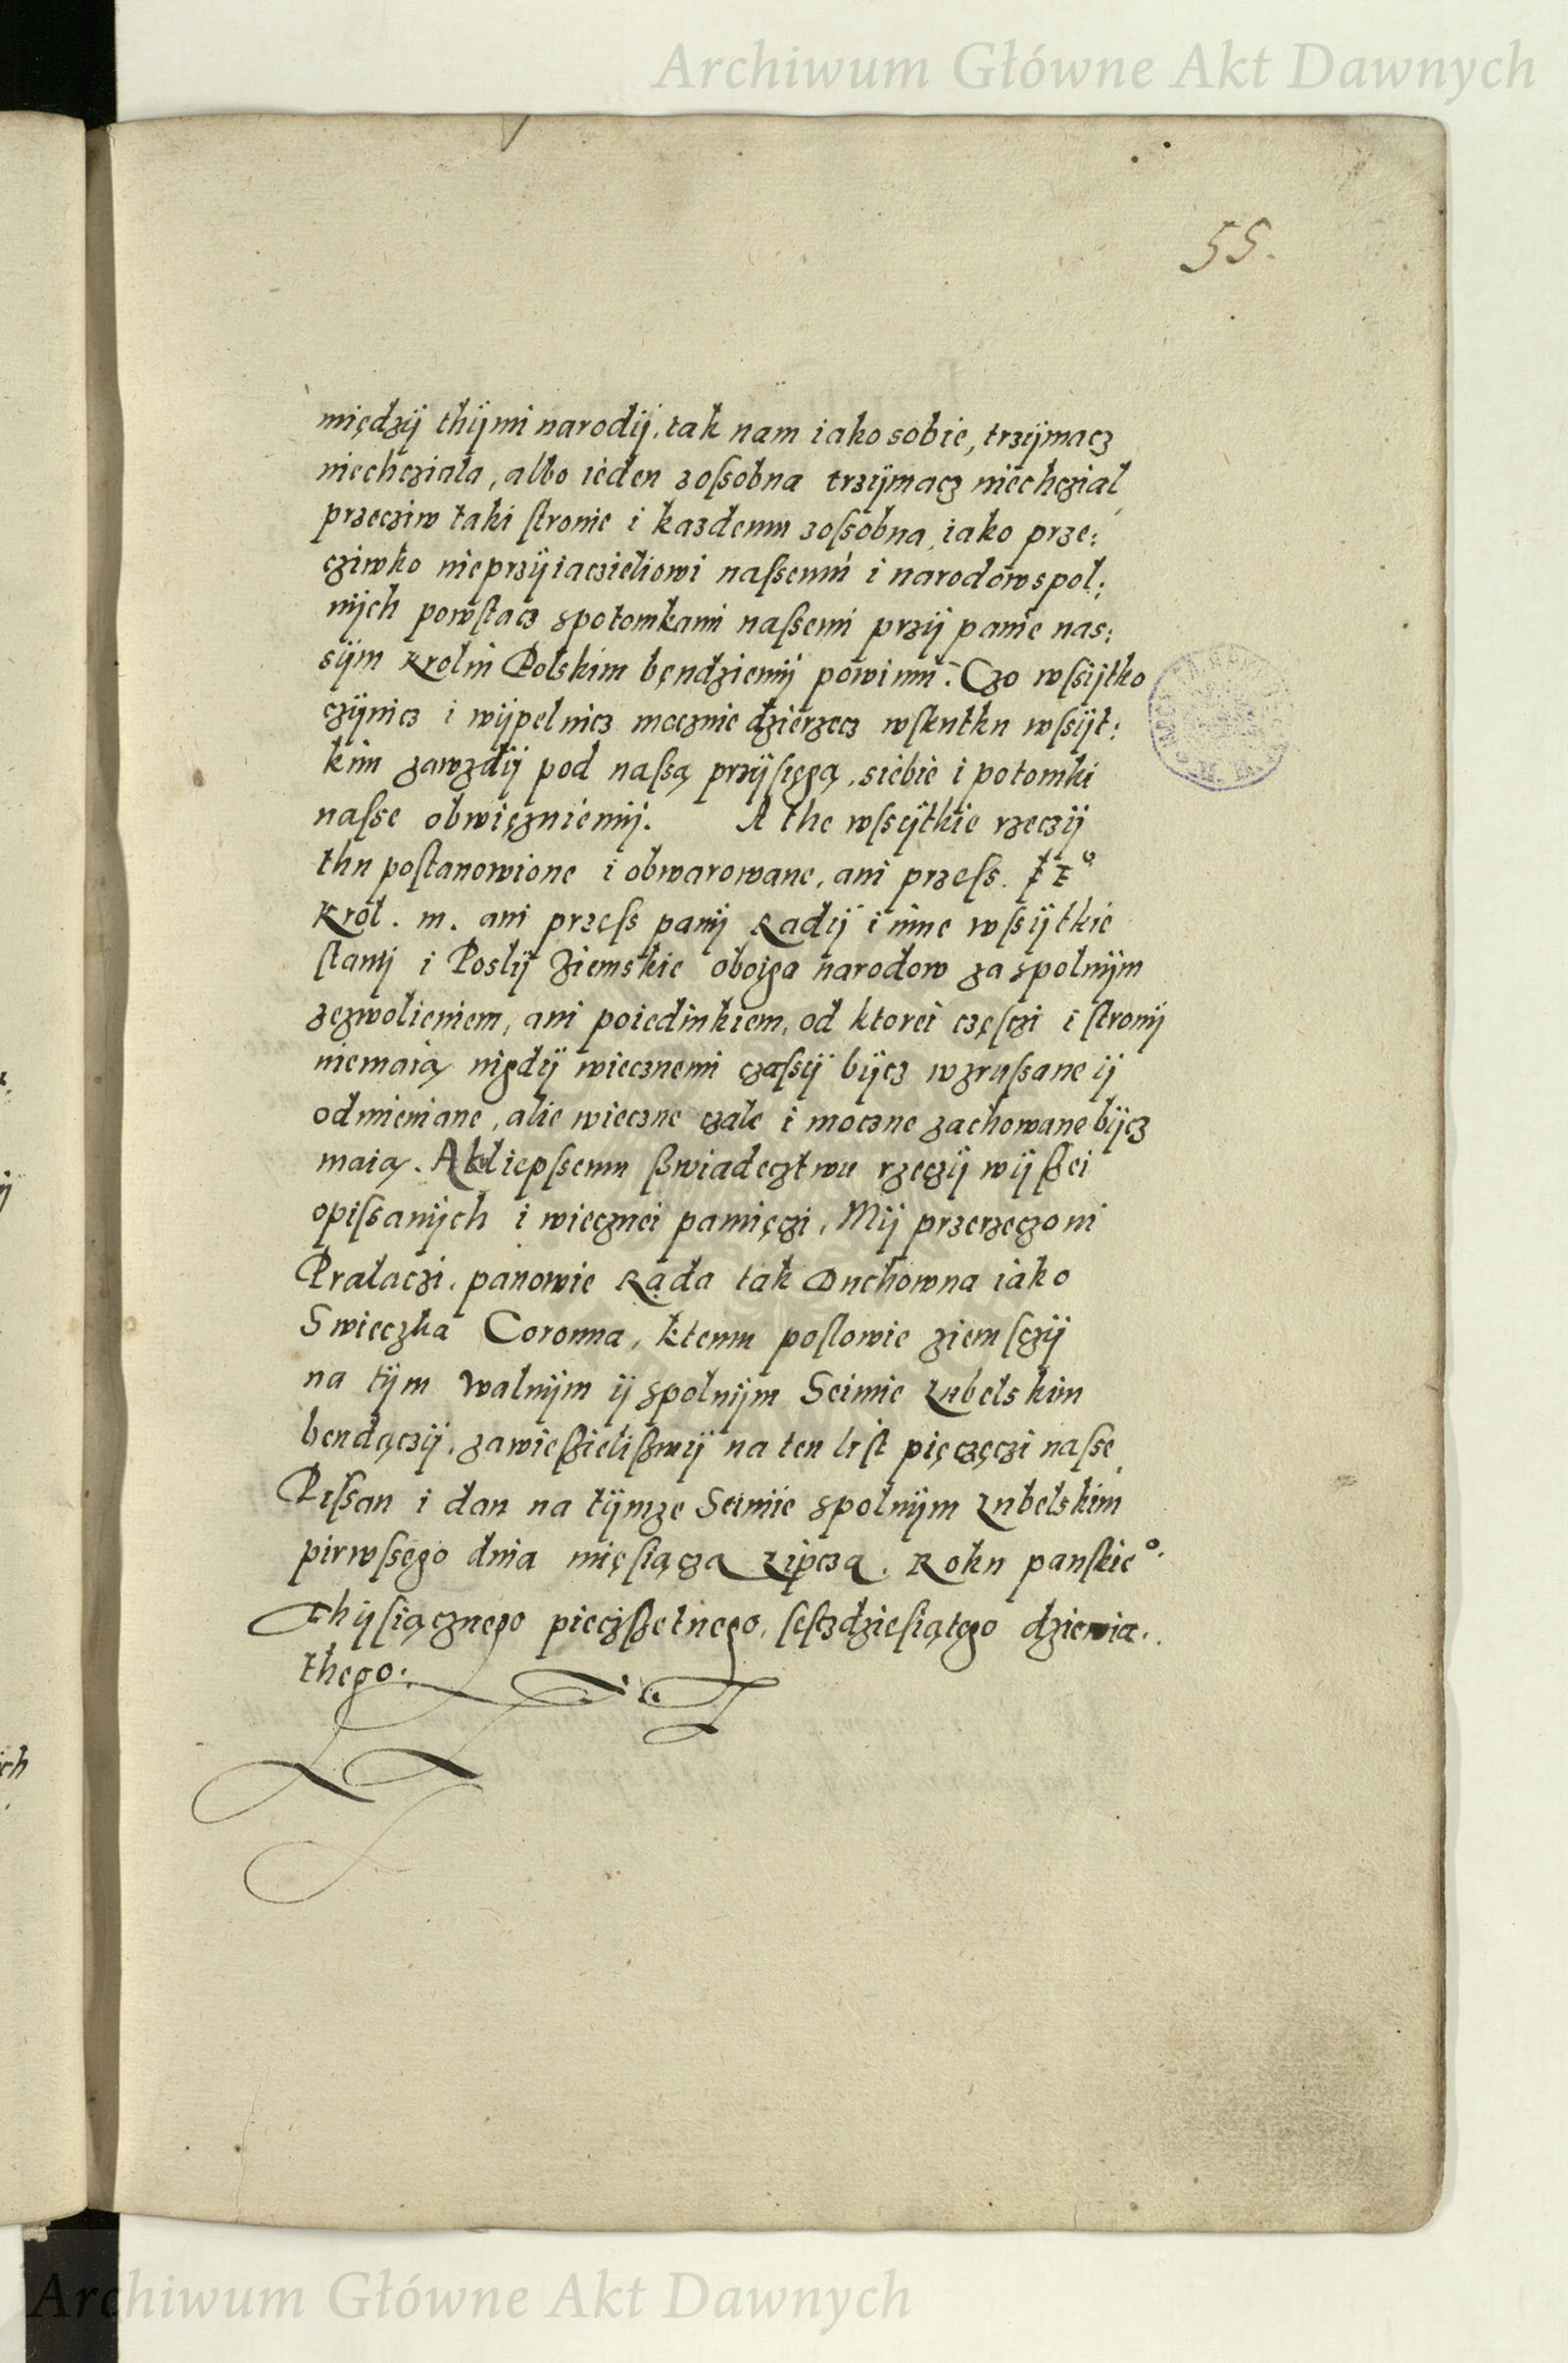 Archiwum Główne Akt Dawnych
55.
międzÿ thÿmi narodÿ, tak nam iako sobie, trzÿmacz
niechcziala, albo ieden zoſsobna trzÿmacz niechczial,
przecziw taki ſtronie i kazdemu zoſsobna, iako prze:
cziwko nieprzÿiaczieliowi naſsemu i narodów spol:
nÿch powſtacz spotomkami naſsemi przÿ panie nas:
sÿm Krolu Polskim bęndziemÿ powinni. Czo wſsÿtko
czÿnicz i wÿpelnicz mocznie dzierzecz wſkutku wſsÿt:
kim zawzdÿ pod naſsą przÿſięgą, siebie i potomki
naſse obwięzuiemÿ. A the wſsÿtkie rzeczÿ
thu poſtanowione i obwarowane, ani przeſs.
Król. m. ani przeſs panÿ Radÿ i inne wſsÿtkie
ſtanÿ i Poslÿ Ziemskie oboiga narodow za spolnÿm
zezwolieniem, ani poiedinkiem, od ktorei częſczi i ſtronÿ
niemaią nigdÿ wiecznemi czaſsÿ bÿcz wzruſsane ÿ
odmieniane, alie wieczne czale i moczne zachowane bÿcz
maią. A kliepſsemu ßwiadecztwu rzeczÿ wÿßei
opiſsanÿch i wiecznei pamięczi, Mÿ przerzeczoni
Pralaczi, panowie Rada tak Duchowna iako
Swieczka Coronna, ktemu poſlowie ziemſczÿ
na tÿm walnÿm ÿ spolnÿm Seimie Lubelskim
bendączÿ, zawießielißmÿ na ten liſt pięczęczi naſse,
Piſsan i dan na tÿmze Seimie spolnÿm Lubelskim
pirwſsego dnia mięſiącza Lipcza. Roku panſkie°.
Thÿſiącznego piecżßetnego, ſeſczdzieſiątego dziewia:
thego.
Archiwum Główne Akt Dawnych